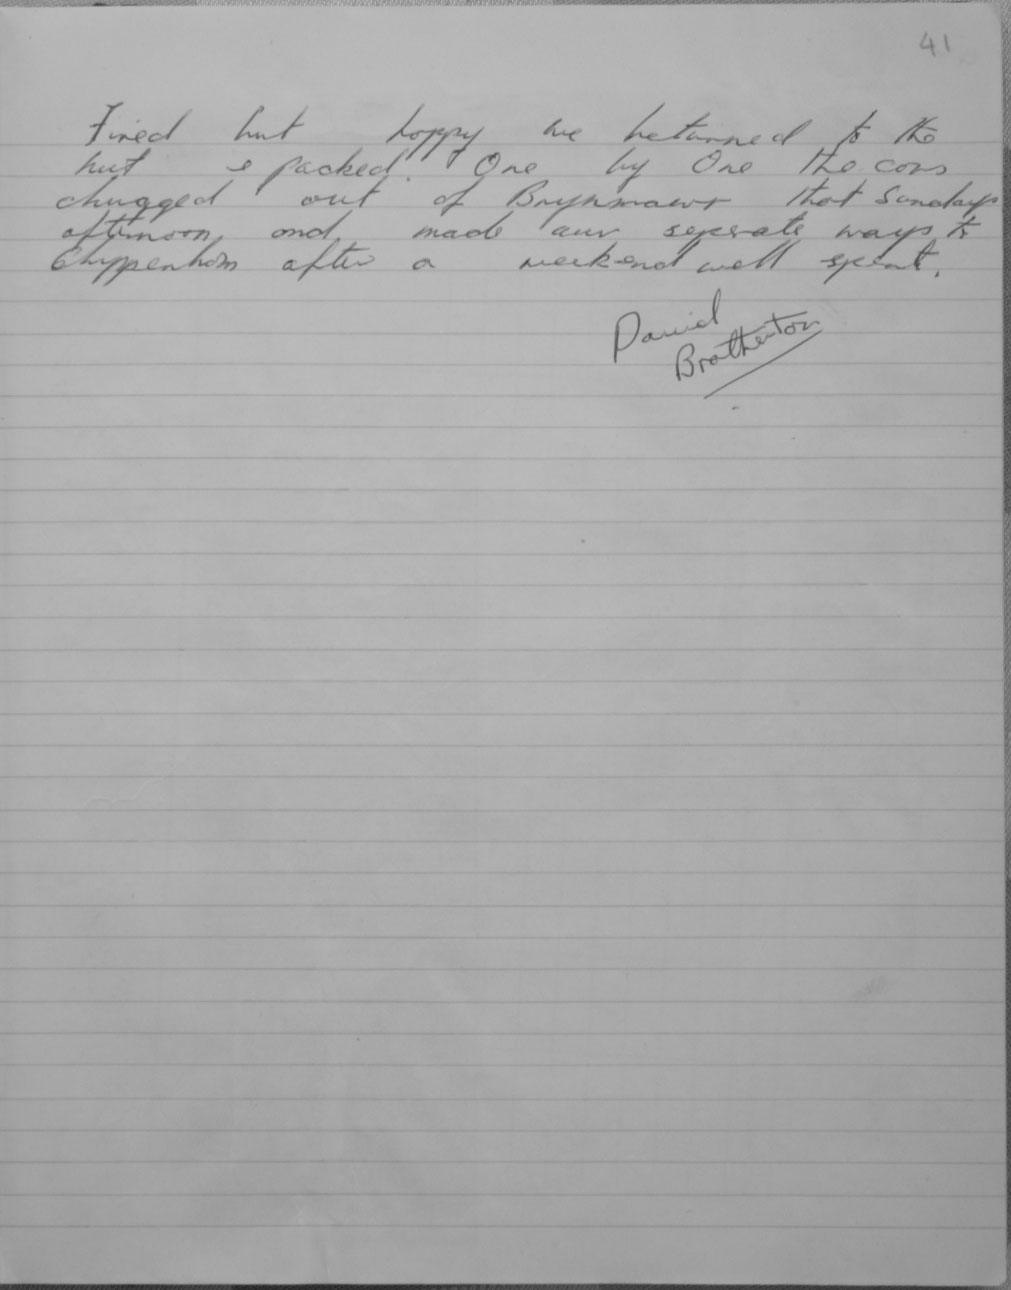 41
Tired but happy we returned to the
hut & packed. One by One the cars
chugged out of Brynmawr that Sundays
afternoon, and made our seperate ways to
Chippenham after a weekend well spent.
David
Brotherton